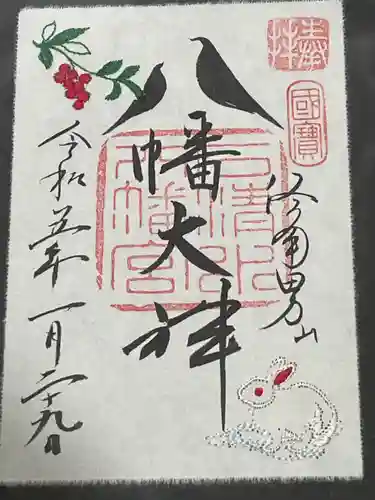 奉拝
國寶
洛南男山
八幡大神
石清水八幡宮
令和五年一月二十九日